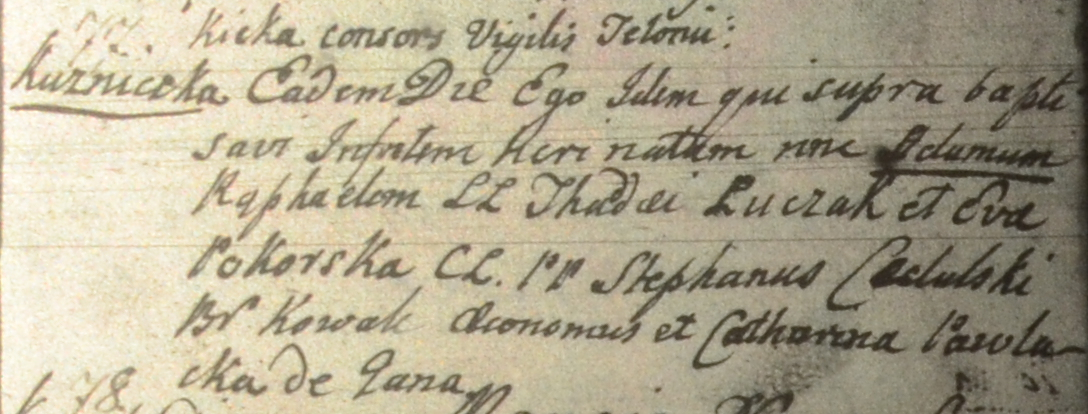 77. Kicka consors Vigilis Telonii:
Kuźniczka Eadem Die Ego Idem qui supra bapti
savi Infntem heri natum nne Adamum
Raphaelem LL Thadæi Łuczak et Evæ
Pokorska CL. PP Stephanus Cedulski
Kowale Œconomus et Catharina Pawla-
cka de Gana
78.